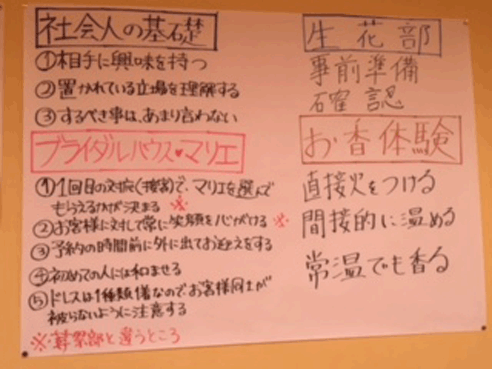 社会人の基礎
①相手に興味を持つ
②置かれている立場を理解する
③するべき事は、あまり言わない
ブライダルハウス♥マリエ
①1回目の対応(接客)で、マリエを選んで
もらえるかが決まる ※
②お客様に対して常に笑顔を心がける ※
③予約の時間前に外に出てお迎えをする
④初めての人には和ませる
⑤ドレスは1種類1様なのでお客様同士が
被らないように注意する
※葬祭部と違うところ
生花部
事前準備
確認
お香体験
直接火をつける
間接的に温める
常温でも香る